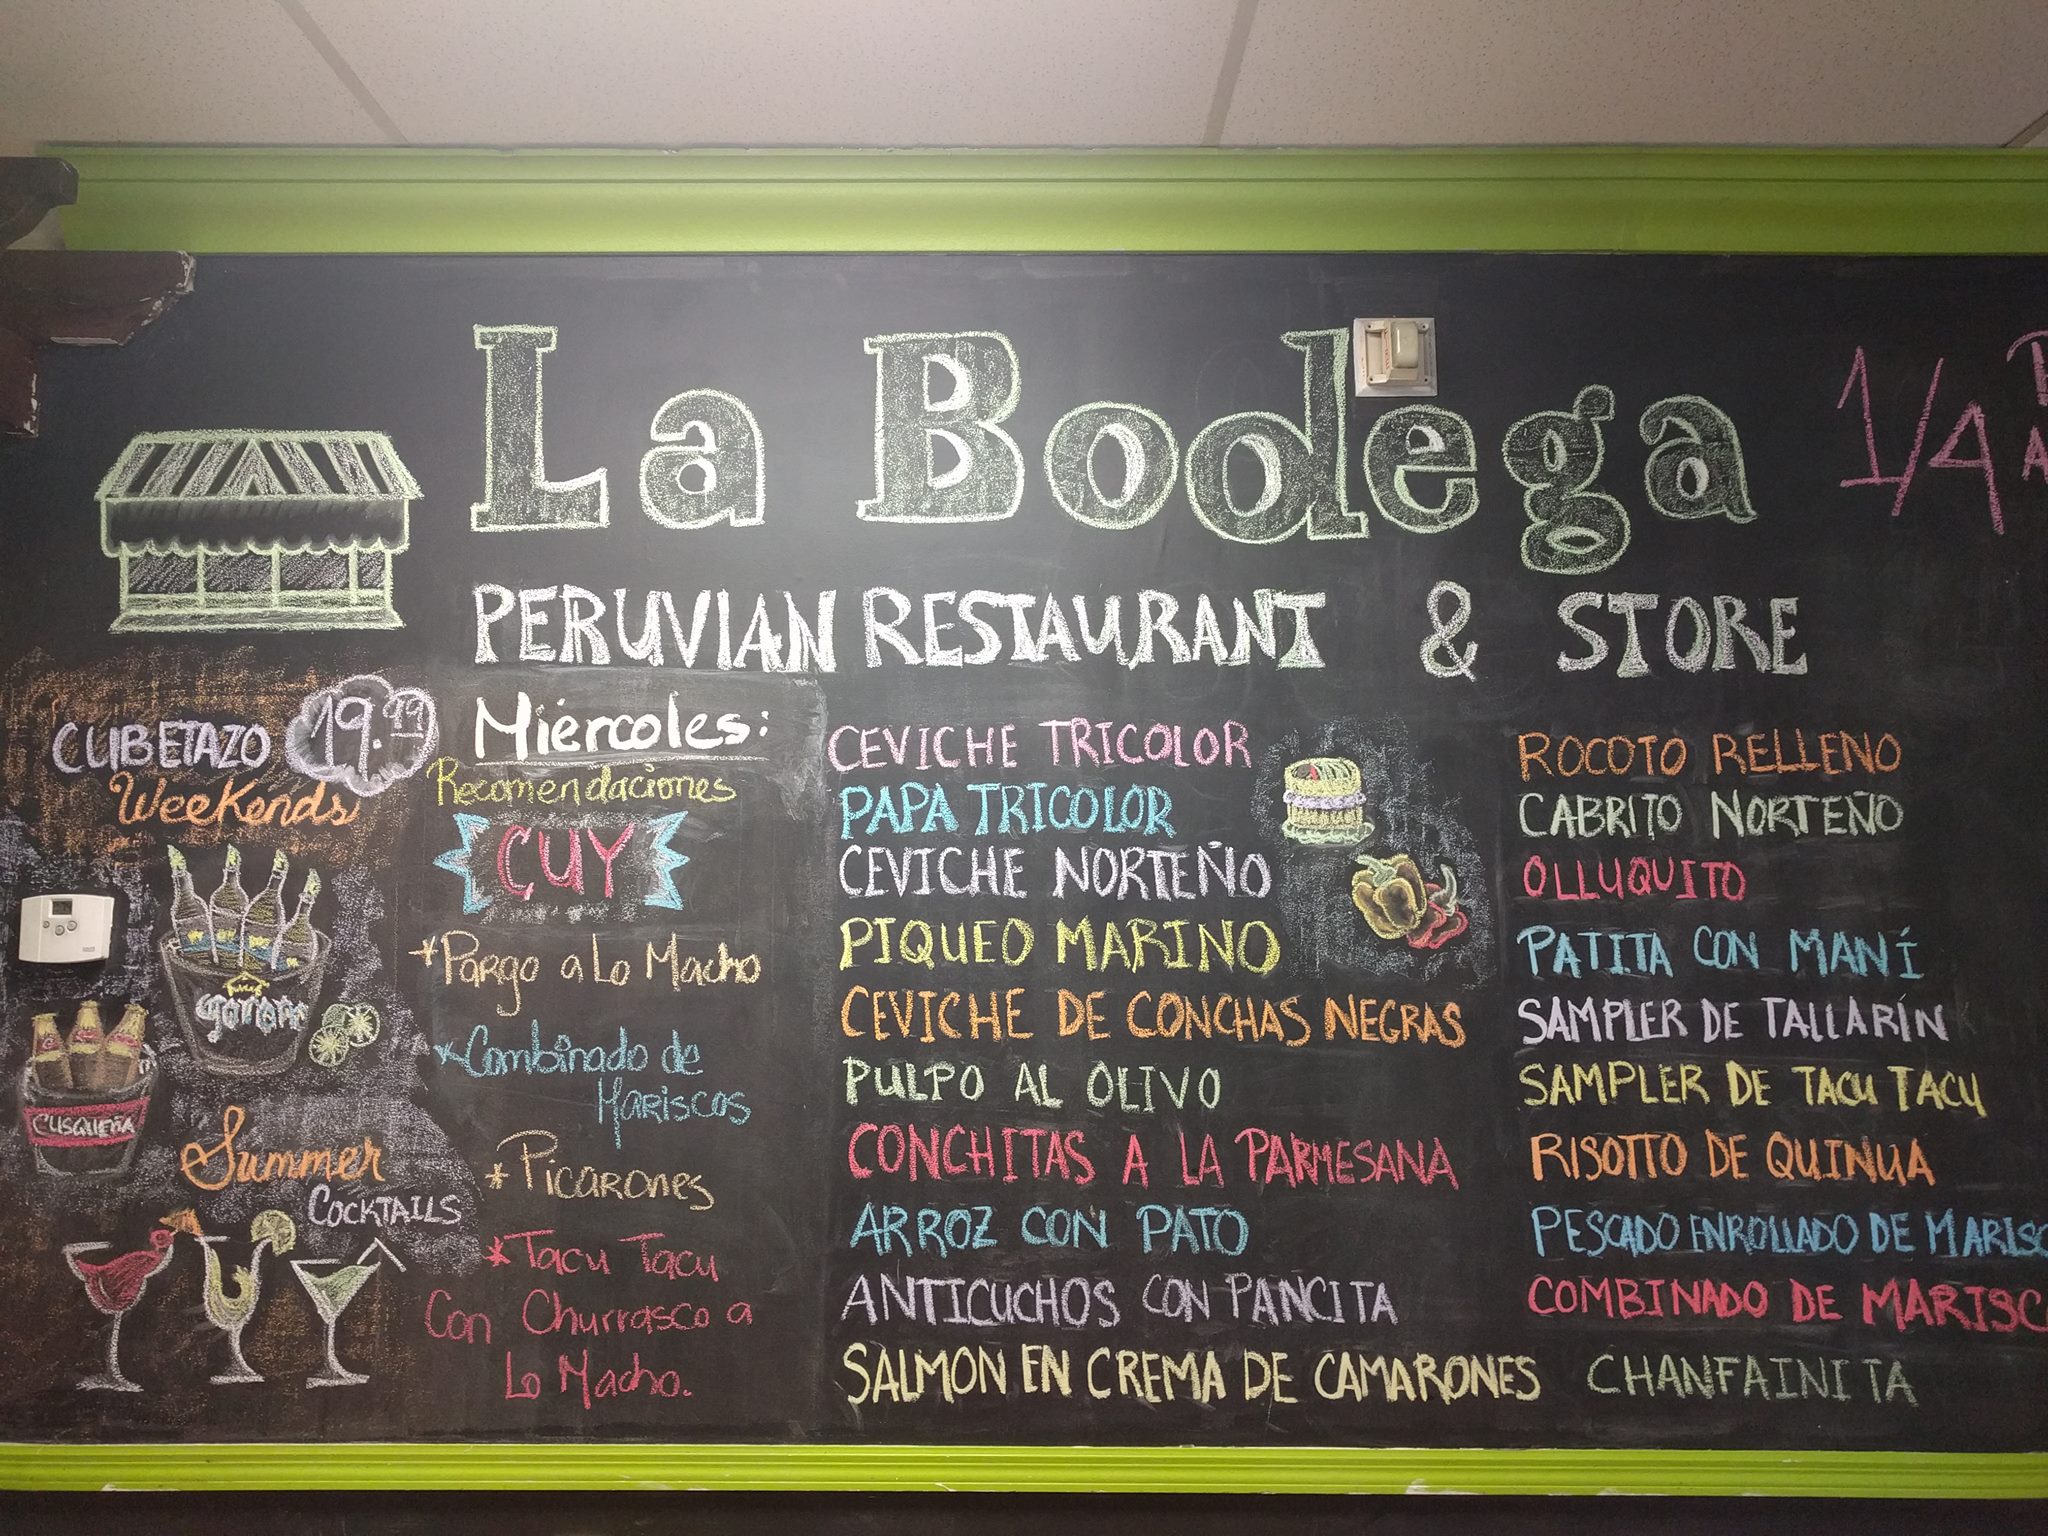 La Bodega
1/4
PERUVIAN RESTAURANT & STORE
CUBETAZO 19.99
Weekends
CUSQUEÑA
Summer
COCKTAILS
Miércoles:
Recomendaciones
CUY
*Pargo a Lo Macho
*Combinado de
Mariscos
*Picarones
*Tacu Tacu
Con Churrasco a
Lo Macho.
CEVICHE TRICOLOR
PAPA TRICOLOR
CEVICHE NORTEÑO
PIQUEO MARINO
CEVICHE DE CONCHAS NEGRAS
PULPO AL OLIVO
CONCHITAS A LA PARMESANA
ARROZ CON PATO
ANTICUCHOS CON PANCITA
SALMON EN CREMA DE CAMARONES
ROCOTO RELLENO
CABRITO NORTEÑO
OLLUQUITO
PATITA CON MANÍ
SAMPLER DE TALLARÍN
SAMPLER DE TACU TACU
RISOTTO DE QUINUA
PESCADO ENROLLADO DE MARISC
COMBINADO DE MARISC
CHANFAINITA